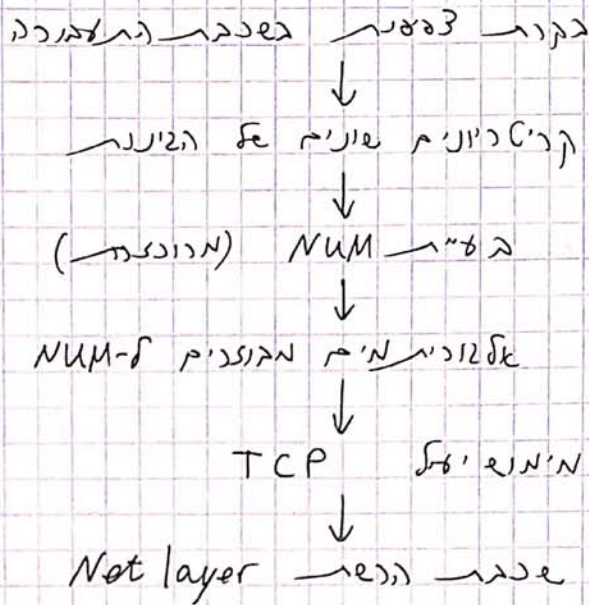 בקרת צפיפות בשכבת התעבורה
↓
קריטריונים שונים של הגינות
↓
בעיית NUM (מרוכזת)
↓
אלגוריתמים מבוזרים ל-NUM
↓
מימוש יעיל TCP
↓
שכבת הרשת Net layer